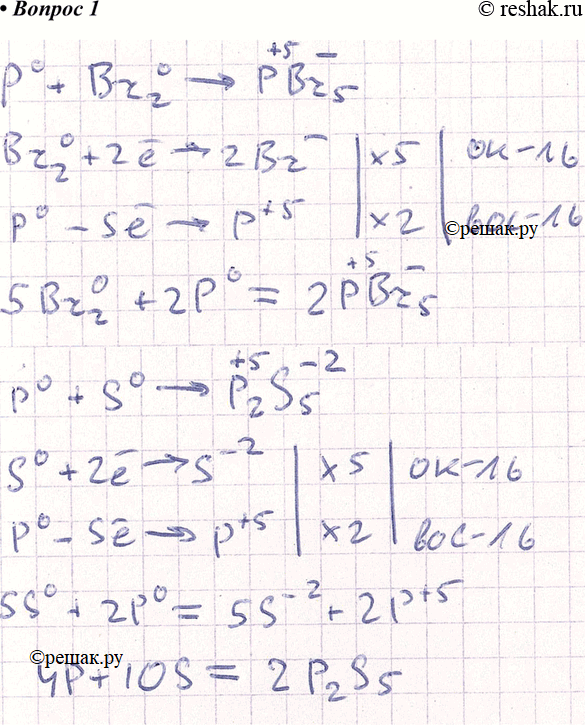 • Вопрос 1
© reshak.ru
P⁰ + Br₂⁰ → P⁺⁵Br₅⁻
Br₂⁰ + 2ē → 2Br⁻ | ×5 | ок-ль
P⁰ - 5ē → P⁺⁵ | ×2 | вос-ль
©решак.ру
5Br₂⁰ + 2P⁰ = 2P⁺⁵Br₅⁻
P⁰ + S⁰ → P₂⁺⁵S₅⁻²
S⁰ + 2ē → S⁻² | ×5 | ок-ль
P⁰ - 5ē → P⁺⁵ | ×2 | вос-ль
5S⁰ + 2P⁰ = 5S⁻² + 2P⁺⁵
©решак.ру
4P + 10S = 2P₂S₅